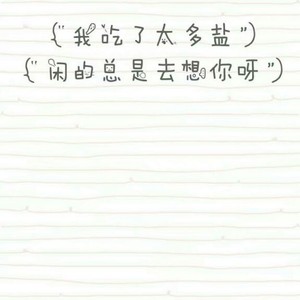 {"我吃了太多盐"}
{"闲的总是去想你呀"}